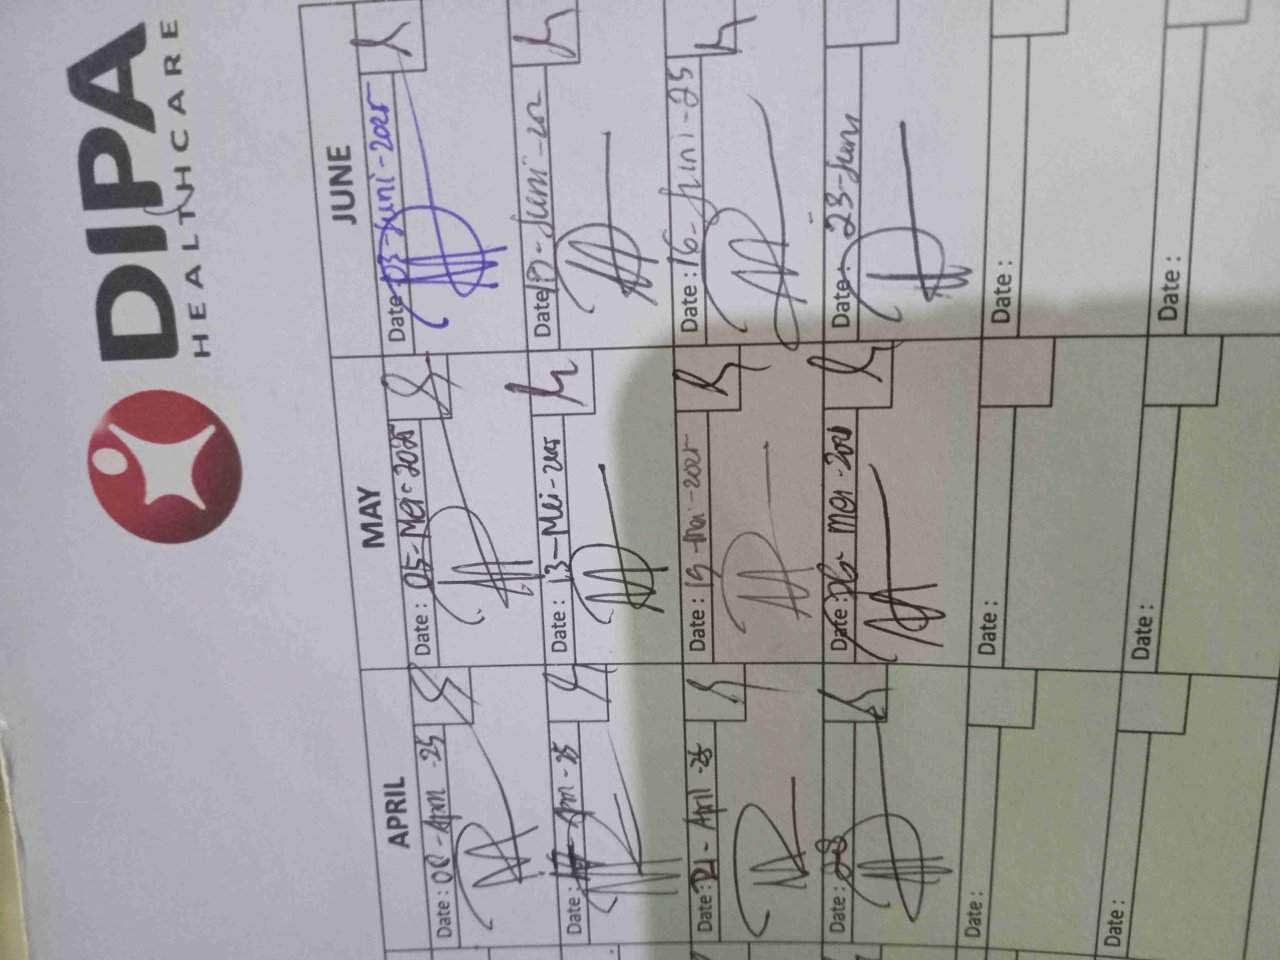 DIPA
HEALTHCARE
APRIL
MAY
JUNE
Date: -25
Date: 05-Mei-2025
Date: 03-Juni-2025
Date: -25
Date: 13-Mei-2025
Date: -Juni-202
Date: 21-April-25
Date: 19-Mei-2025
Date: 16-Juni-25
Date: 28
Date: Mei-
Date: 23-Juni
Date:
Date:
Date:
Date:
Date:
Date: